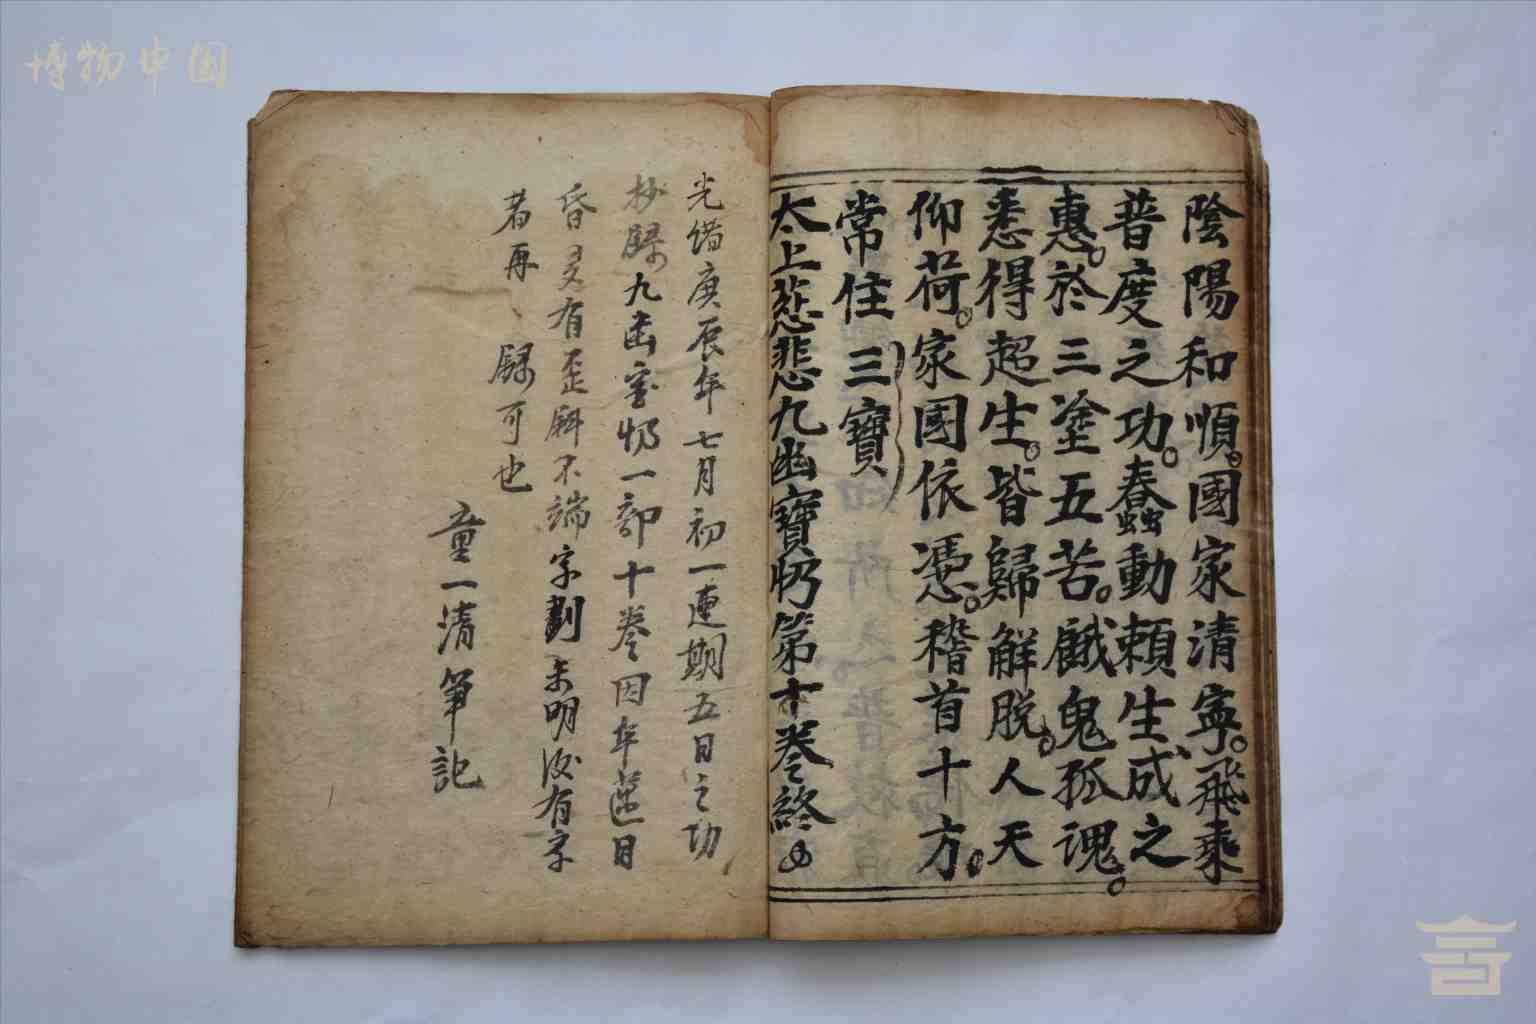 博物中国
陰陽和順。國家清寧。飛乘
普度之功。蠢動賴生成之
惠。於三塗五苦。餓鬼孤魂。
悉得超生。皆歸解脱。人天
仰荷。家國依憑。稽首十方。
常住三寶
太上慈悲九幽寶懺第十卷終
光緒庚辰年七月初一連期五日之功
抄録九幽宝懺一部十卷因年邁日
昏 有歪斜不端字劃未明後有字
者再録可也
童一清筆記